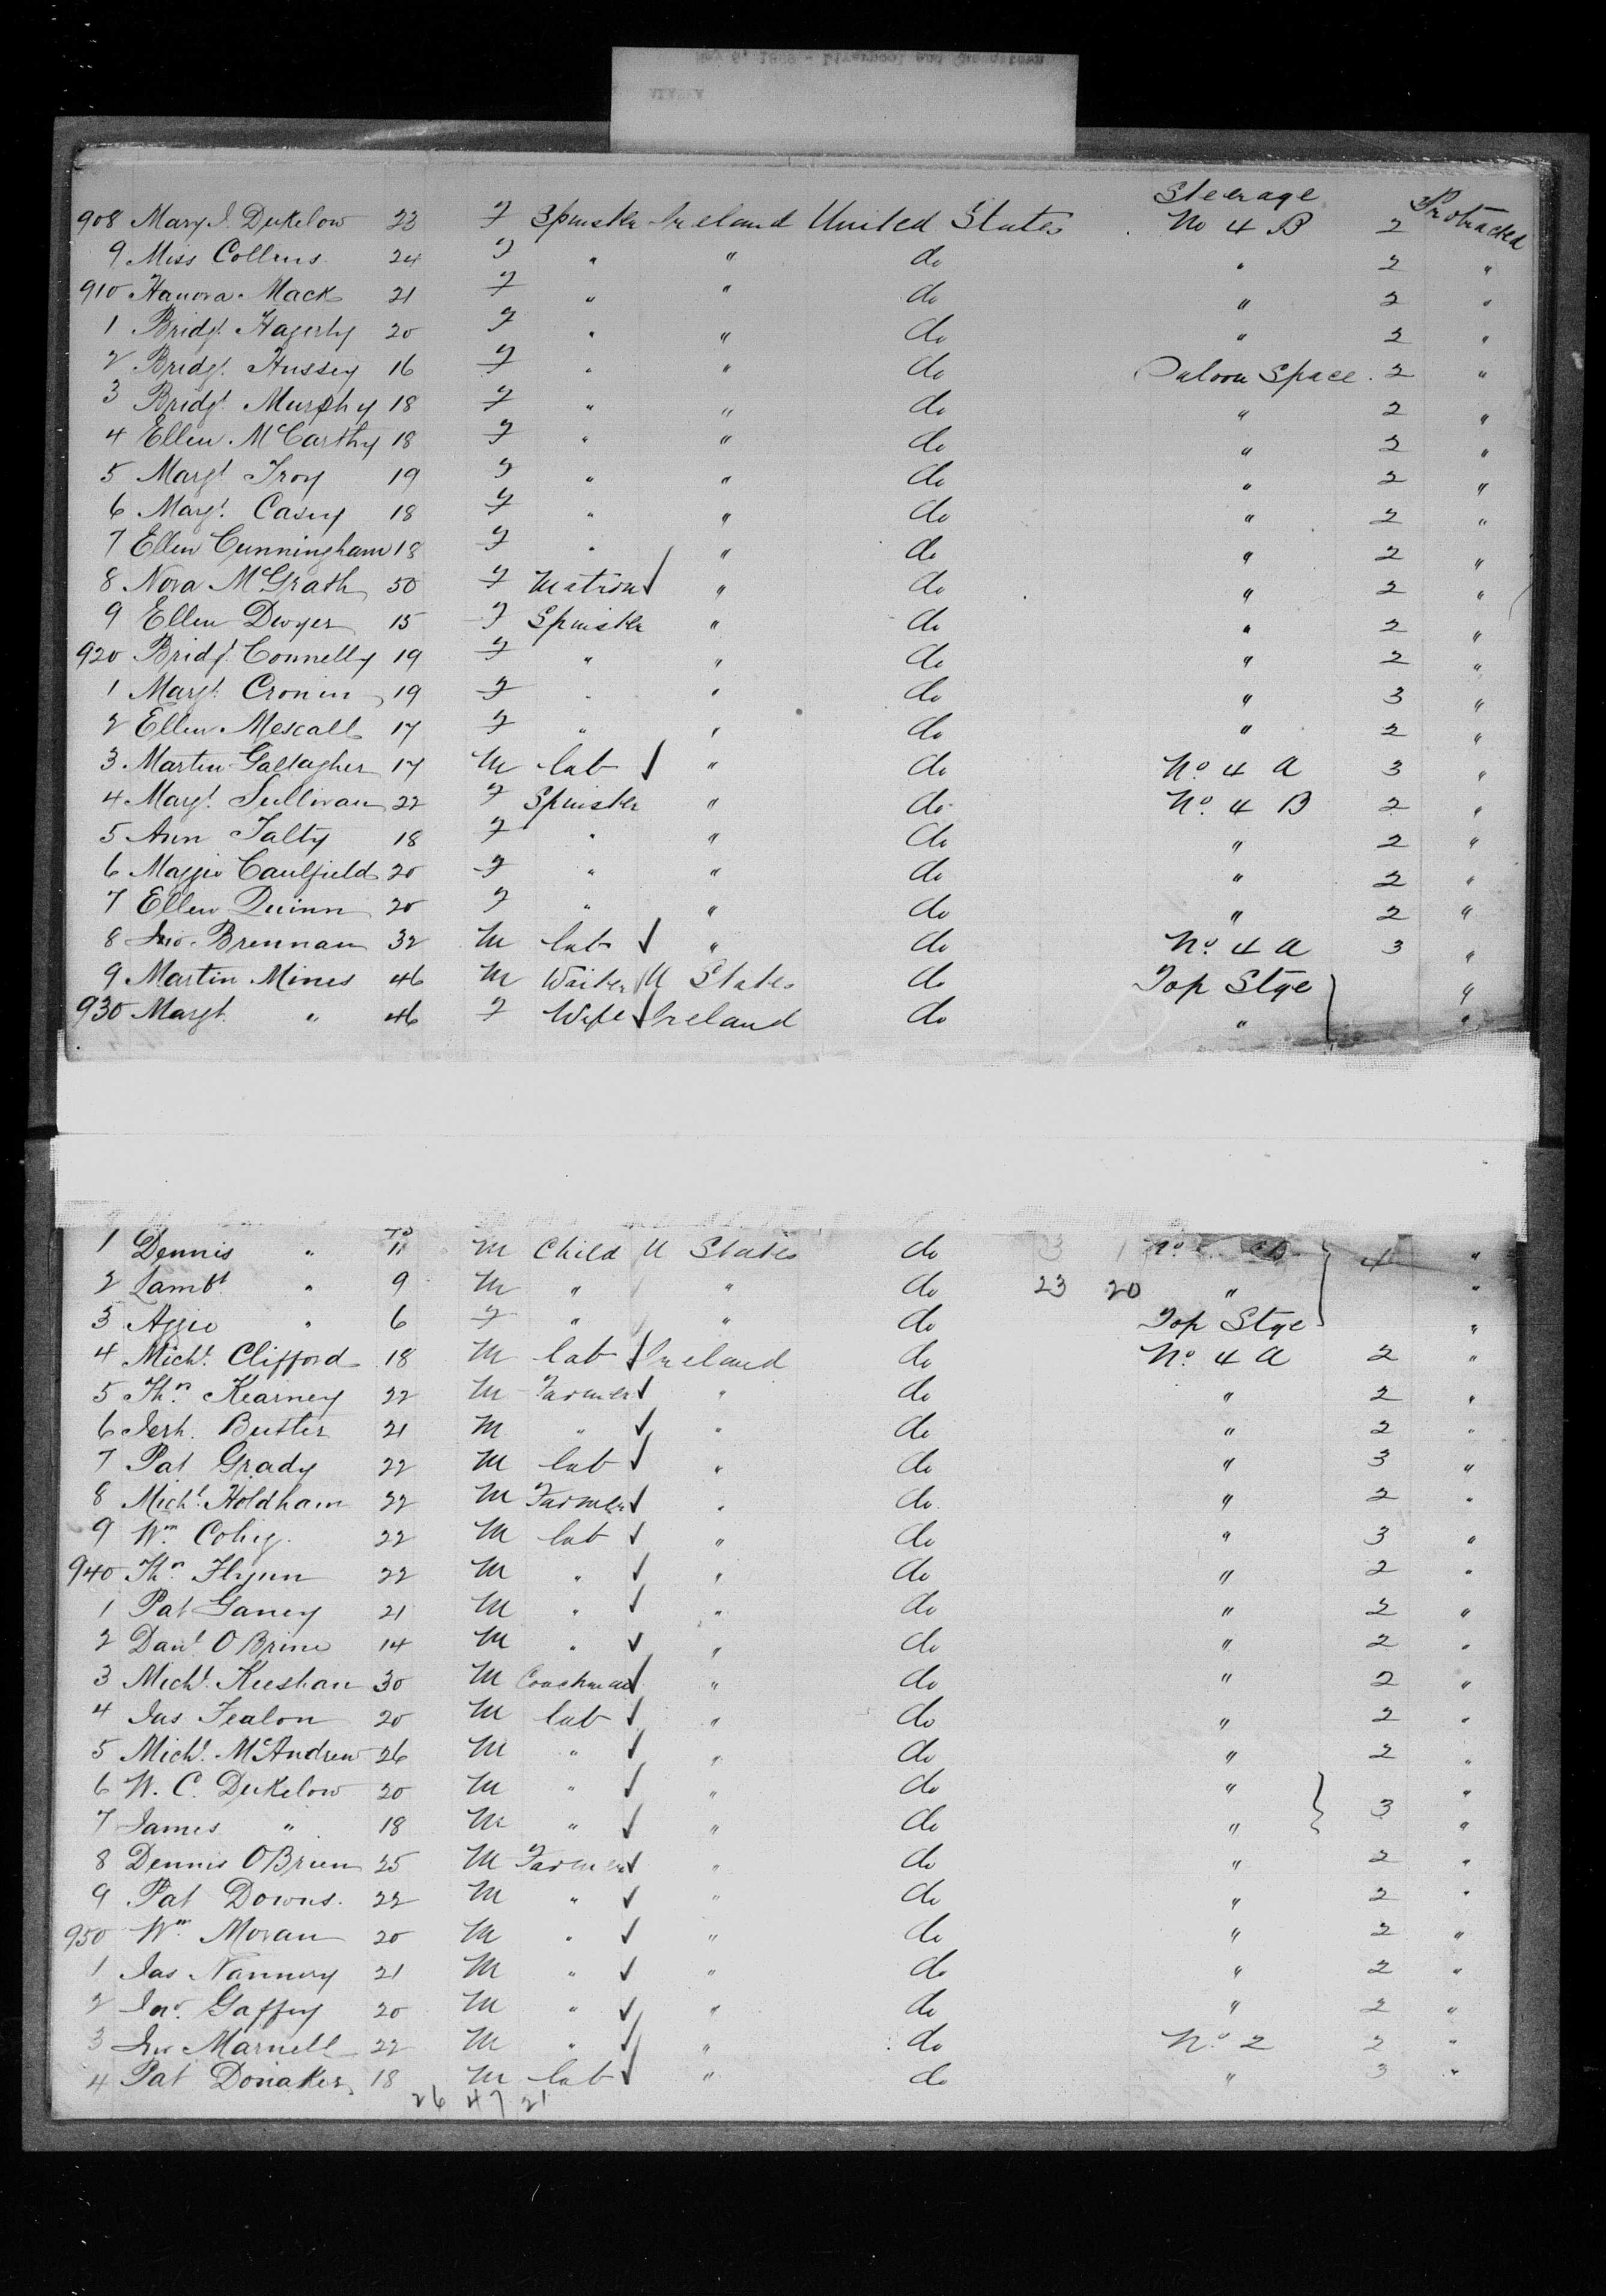 Steerage
908 Mary J. Dukelow 23 F Spinster Ireland United States No 4 B 2 Protracted
9 Miss Collins 24 F " " do " 2 "
910 Hanora Mack 21 F " " do " 2 "
1 Bridgt. Hagerty 20 F " " do " 2 "
2 Bridgt. Hussey 16 F " " do Saloon Space 2 "
3 Bridgt. Murphy 18 F " " do " 2 "
4 Ellen McCarthy 18 F " " do " 2 "
5 Margt. Troy 19 F " " do " 2 "
6 Margt. Casey 18 F " " do " 2 "
7 Ellen Cunningham 18 F " " do " 2 "
8 Nora McGrath 50 F Matron ✓ " do " 2 "
9 Ellen Dwyer 15 F Spinster " do " 2 "
920 Bridgt. Connelly 19 F " " do " 2 "
1 Margt. Cronin 19 F " " do " 3 "
2 Ellen Mescall 17 F " " do " 2 "
3 Martin Gallagher 17 M lab ✓ " do No. 4 A 3 "
4 Margt. Sullivan 22 F Spinster " do No. 4 B 2 "
5 Ann Talty 18 F " " do " 2 "
6 Maggie Caulfield 20 F " " do " 2 "
7 Ellen Quinn 20 F " " do " 2 "
8 Jno. Brennan 32 M lab ✓ " do No. 4 A 3 "
9 Martin Mines 46 M Waiter U States do Top Stge "
930 Margt. " 46 F Wife ✓ Ireland do " "
1 Dennis " 11 M Child U States do 4 "
2 Lambt. " 9 M " " do 23 20 " "
3 Aggie " 6 F " " do Top Stge "
4 Michl. Clifford 18 M lab ✓ Ireland do No. 4 A 2 "
5 Thn. Kearney 22 M Farmer ✓ " do " 2 "
6 Jerh. Butler 21 M " ✓ " do " 2 "
7 Pat Grady 22 M lab ✓ " do " 3 "
8 Michl. Holdham 22 M Farmer ✓ " do " 2 "
9 Wm. 22 M lab ✓ " do " 3 "
940 Thn. Flynn 22 M " ✓ " do " 2 "
1 Pat Ganey 21 M " ✓ " do " 2 "
2 Danl. O Brine 14 M " ✓ " do " 2 "
3 Michl. Keeshan 30 M Coachman ✓ " do " 2 "
4 Jas Fealon 20 M lab ✓ " do " 2 "
5 Michl. McAndrew 26 M " ✓ " do " 2 "
6 W. C. Dukelow 20 M " ✓ " do " 3 "
7 James " 18 M " ✓ " do " "
8 Dennis O Brien 25 M Farmer ✓ " do " 2 "
9 Pat Downs. 22 M " ✓ " do " 2 "
950 Wm. Moran 20 M " ✓ " do " 2 "
1 Jas Nannery 21 M " ✓ " do " 2 "
2 Jno. Gaffey 20 M " ✓ " do " 2 "
3 Jno Marnell 22 M " ✓ " do No. 2 2 "
4 Pat Donaker 18 M lab ✓ " do " 3 "
26 47 21